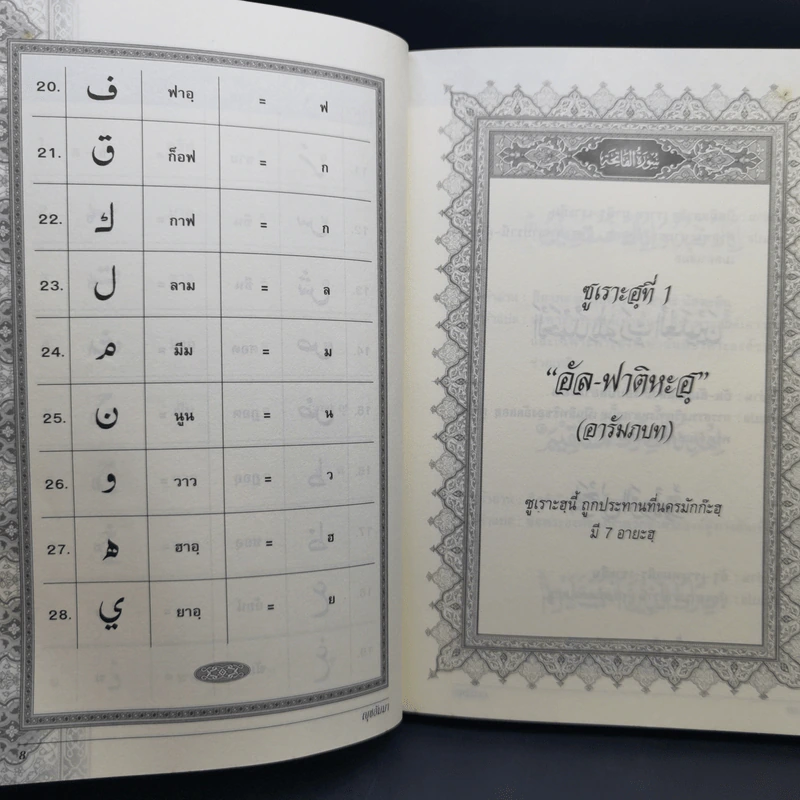 20. ف ฟาอฺ = ฟ
21. ق ก็อฟ = ก
22. ك กาฟ = ก
23. ل ลาม = ล
24. م มีม = ม
25. ن นูน = น
26. و วาว = ว
27. ه ฮาอฺ = ฮ
28. ي ยาอฺ = ย
8
سورة الفاتحة
ซูเราะฮฺที่ 1
“อัล-ฟาติหะฮฺ”
(อารัมภบท)
ซูเราะฮฺนี้ ถูกประทานที่นครมักก๊ะฮฺ
มี 7 อายะฮฺ